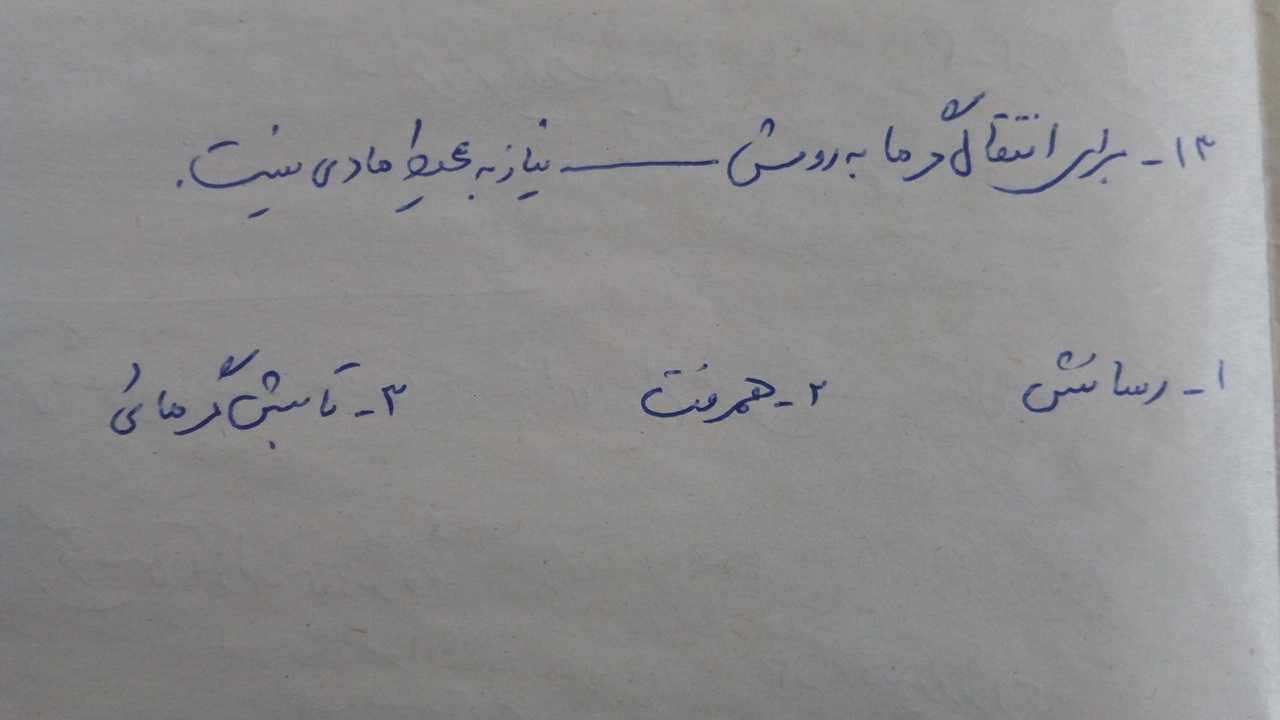 ۱۳- برای انتقال گرما به روش ـــــــــ نیاز به محیط مادی نیست.
۱- رسانش ۲- همرفت ۳- تابش گرمائی